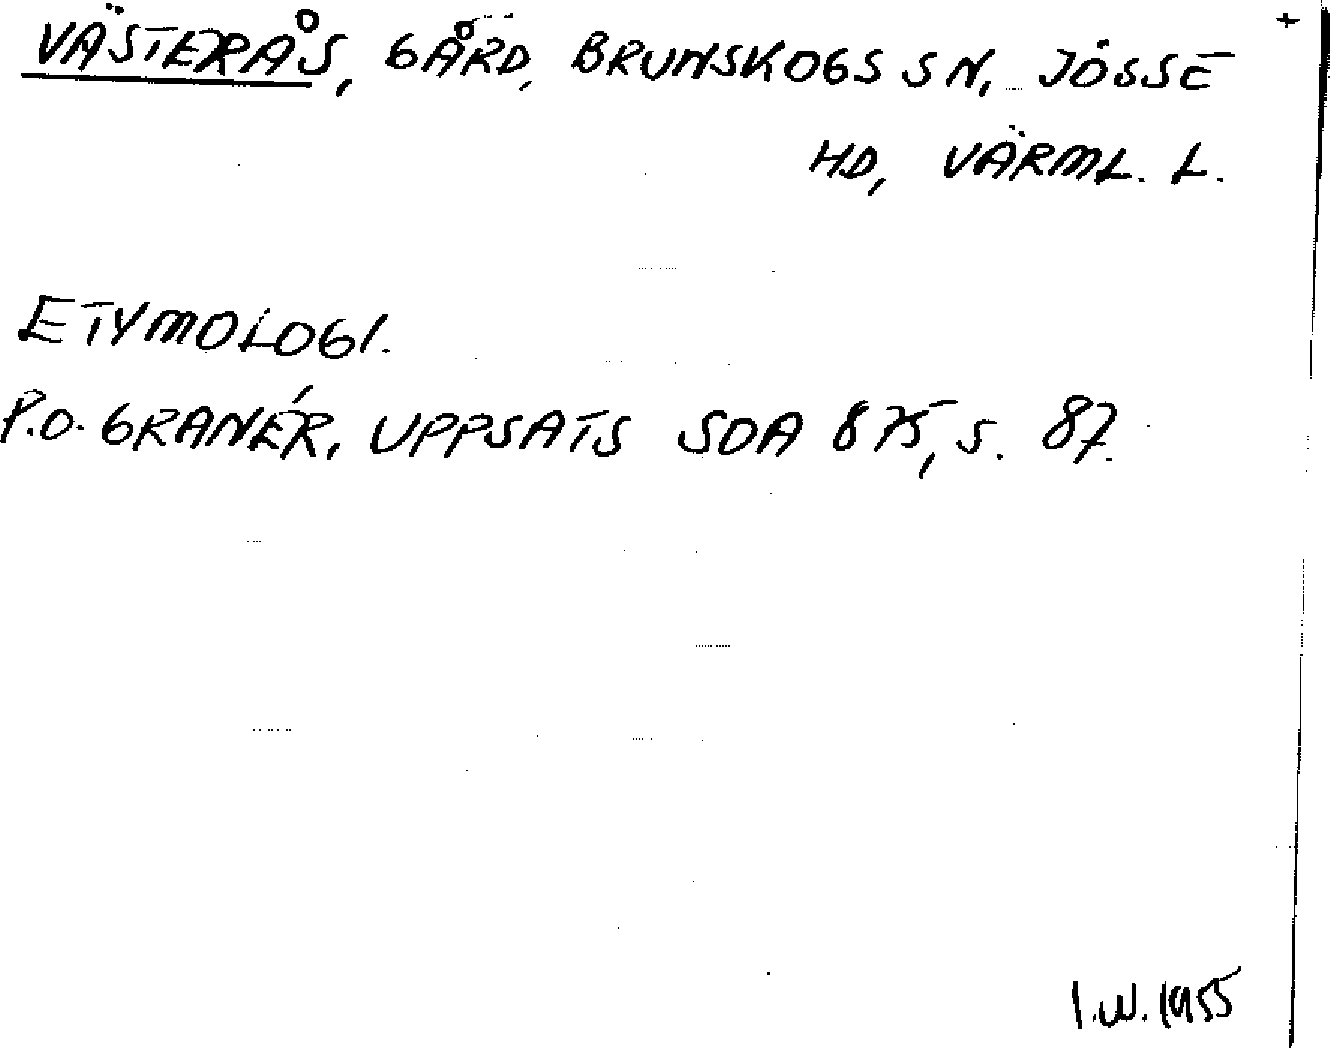 +
VÄSTERÅS, GÅRD, BRUNSKOGS SN, JÖSSE
HD, VÄRML. L.
ETYMOLOGI.
P.O. GRANÉR, UPPSATS SOA 875, S. 87.
I.W. 1955